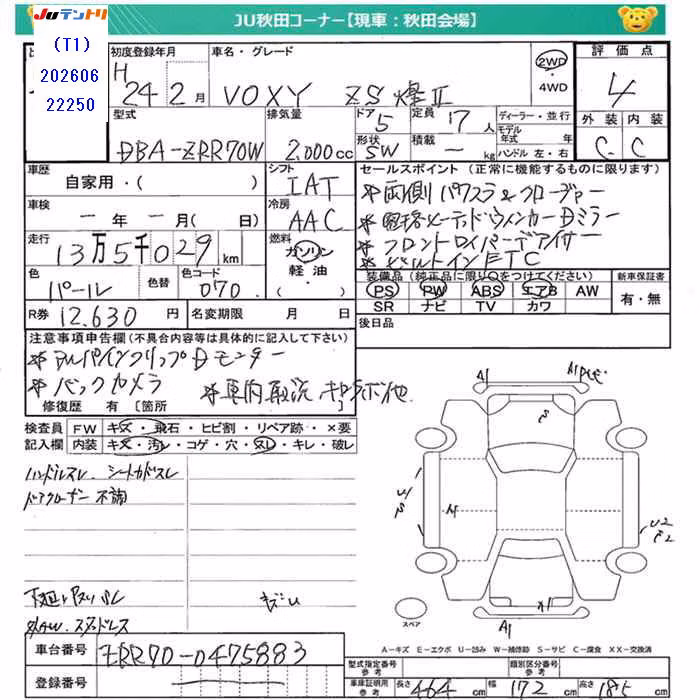 JUテントリ
JU秋田コーナー【現車：秋田会場】
(T1)
202606
22250
初度登録年月
車名・グレード
評価点
H
24 2月
VOXY ZS 煌Ⅱ
2WD
・
4WD
4
型式
排気量
ドア
5
定員
7人
ディーラー・並行
モデル年式
年
外装
内装
DBA-ZRR70W
2,000cc
形状
SW
積載
ー kg
ハンドル 左・右
C
C
車歴
シフト
セールスポイント（正常に機能するものに限ります）
自家用・( )
IAT
*両側パワスラ&クロージャー
車検
冷房
ー年ー月(日)
AAC
Dミラー
走行
燃料
*フロント
13万5千029km
ガソリン
・
軽油
・
*ビルトインETC
色
色替
色コード
装備品（純正品に限り○をつけてください）
新車保証書
パール
070
PS PW ABS エアB AW
有・無
SR ナビ TV カワ
R券
12,630円
名変期限
月 日
後日品
注意事項申告欄(不具合内容等は具体的に記入して下さい)
*アルパインフリップDモニター
*バックカメラ
*車内取説
修復歴 有 [箇所 ]
検査員
記入欄
FW
キズ・飛石・ヒビ割・リペア跡・×要
内装
キズ・汚レ・コゲ・穴・スレ・キレ・破レ
ハンドルスレ シートカドスレ
ドアクローザー不調
スタッドレス
A1
A1
スペア
A1
A-キズ E-エクボ U-凹み W-補修跡 S-サビ C-腐食 XX-交換済
車台番号
ZRR70-0475883
登録番号
型式指定番号
参考
類別区分番号
参考
車庫証明用
参考
長さ
464cm
幅
172cm
高さ
185cm